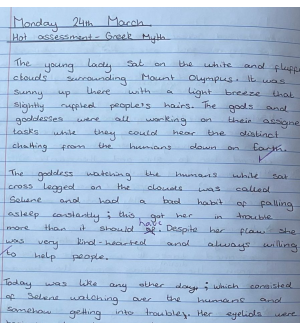 Monday 24th March.
Hot assessment - Greek Myth
The young lady sat on the white and fluffy
clouds surrounding Mount Olympus. It was
sunny up there with a light breeze that
slightly ruffled people's hairs. The gods and
goddesses were all working on their assigne
tasks while they could hear the distinct
chatting from the humans down on Earth.
The goddess watching the humans while sat
cross legged on the clouds was called
Selene and had a bad habit of falling
asleep constantly; this got her in trouble
more than it should have. Despite her flaw she
was very kind-hearted and always willing
to help people.
Today was like any other day; which consisted
of Selene watching over the humans and
somehow getting into troubles. Her eyelids were